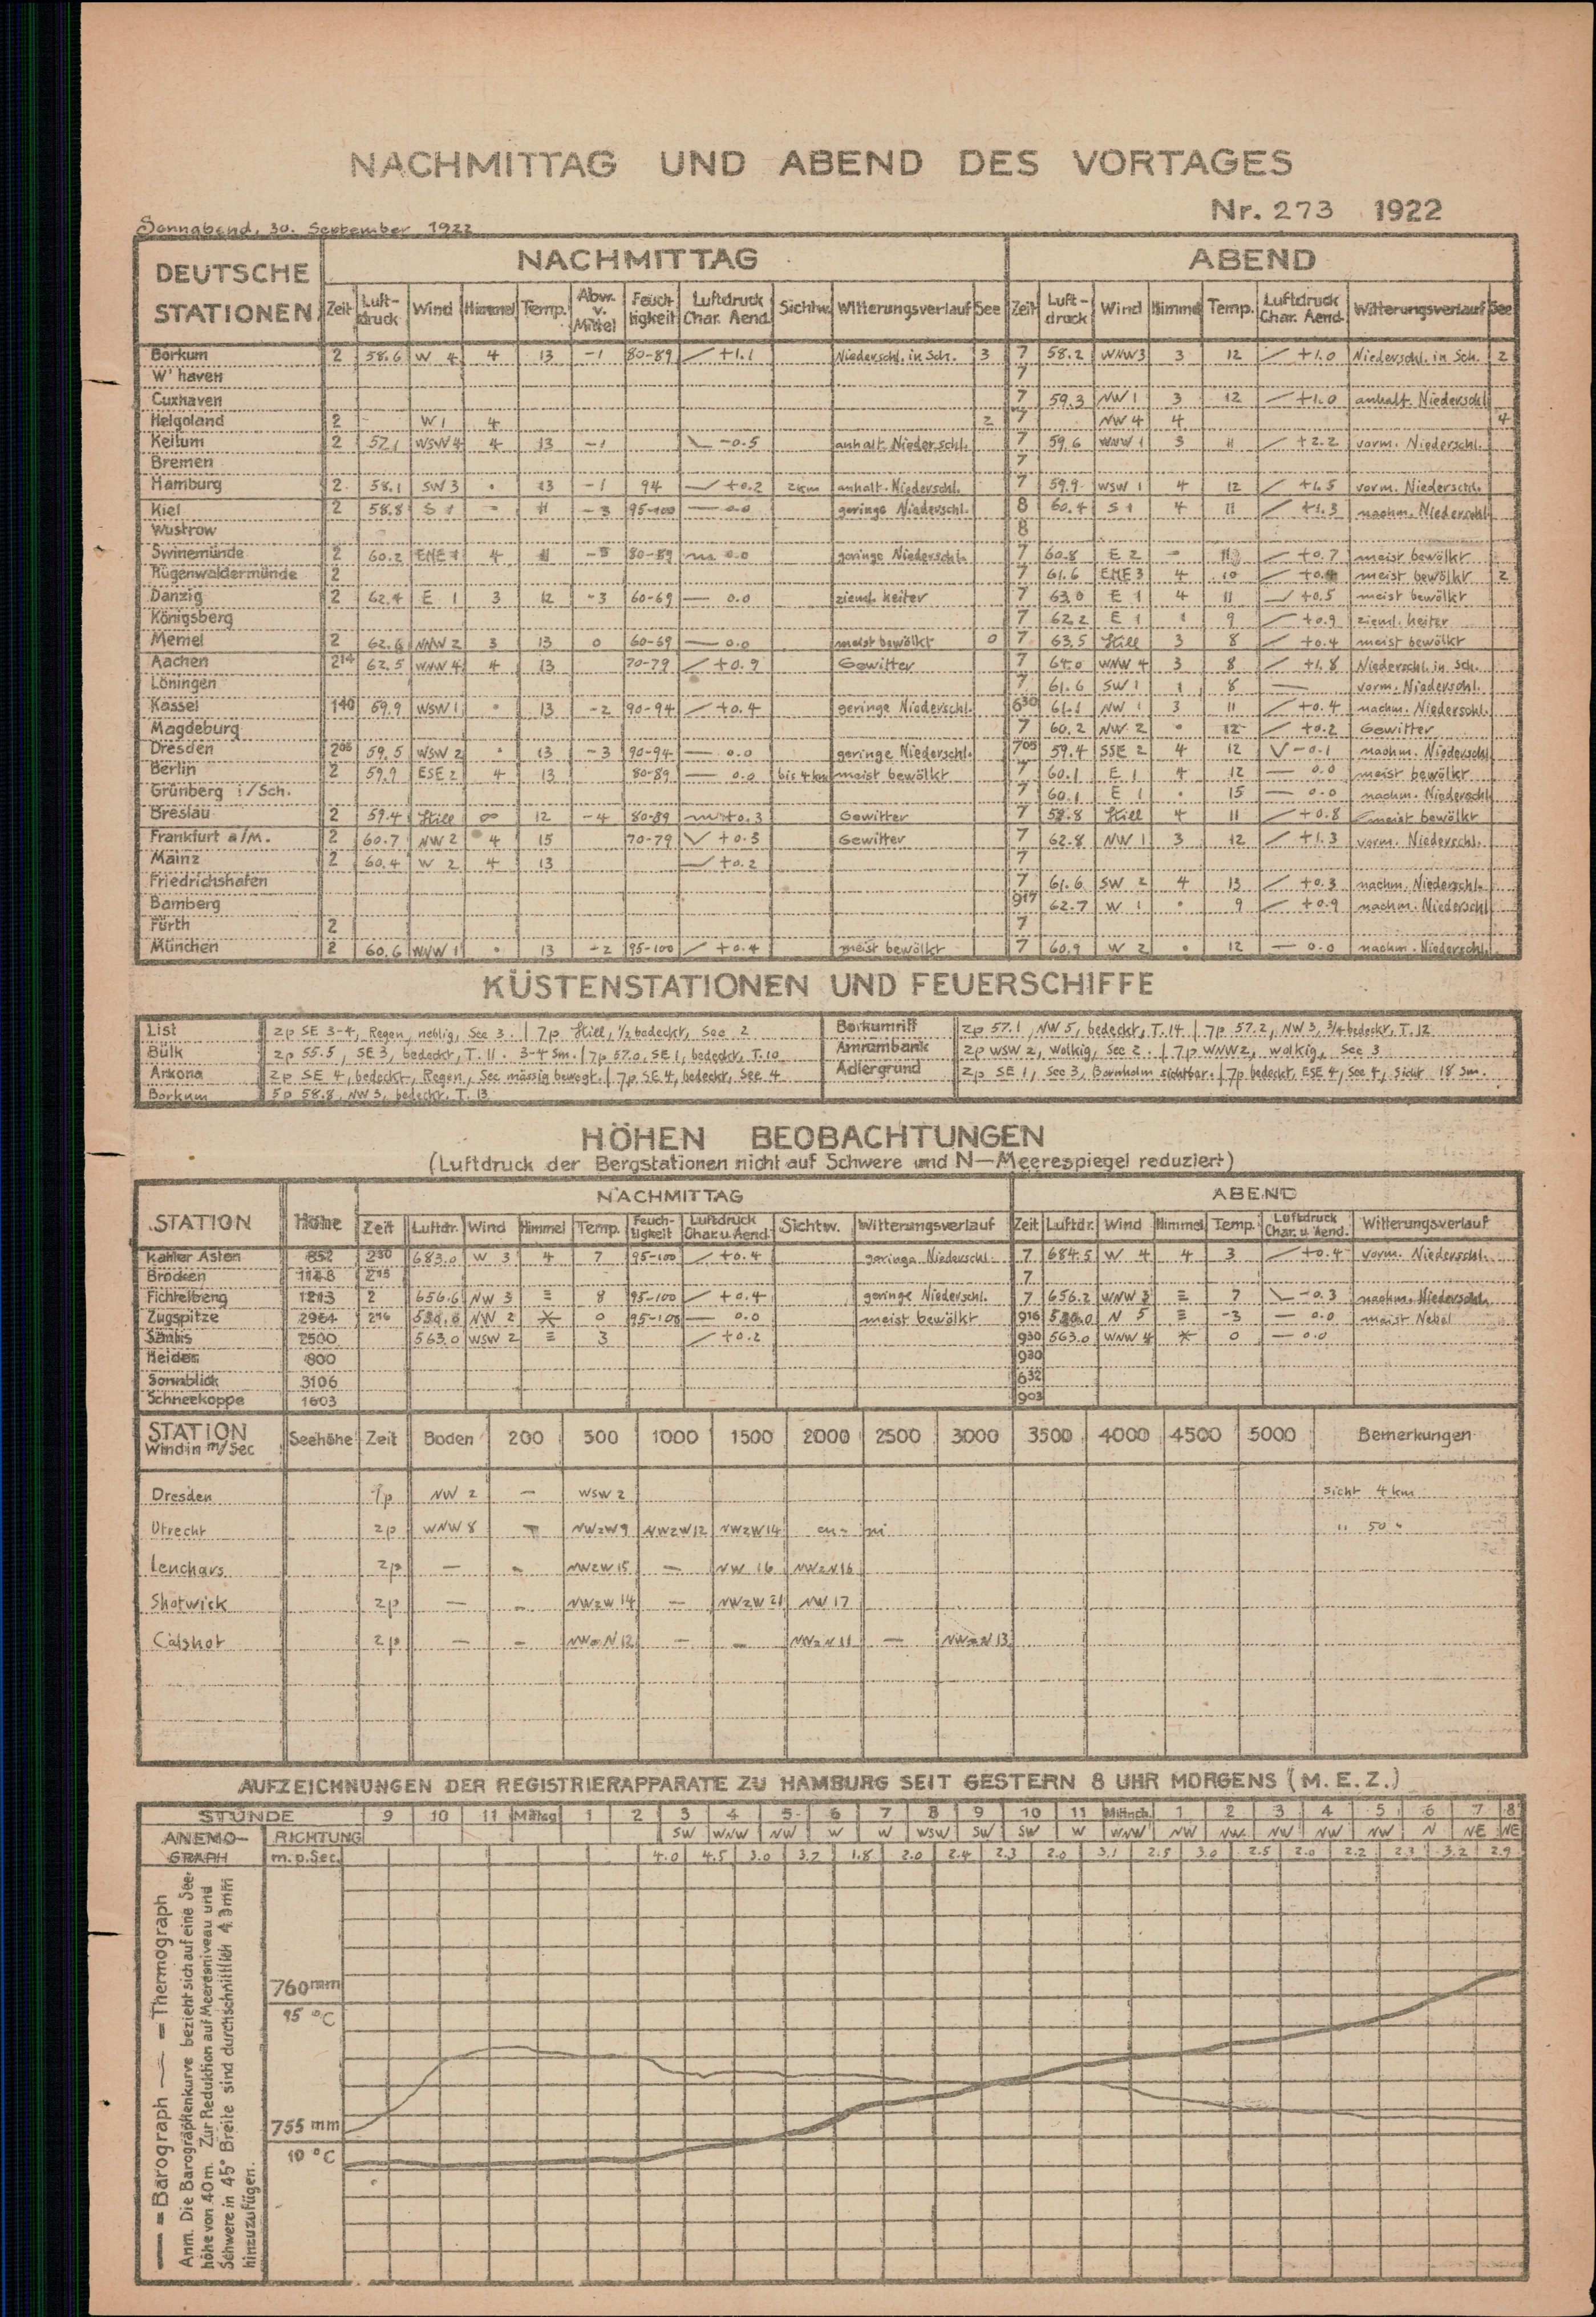 NACHMITTAG UND ABEND DES VORTAGES
Nr. 273 1922
Sonnabend, 30. September 1922
DEUTSCHE STATIONEN NACHMITTAG ABEND
Zeit Luft-druck Wind Himmel Temp. Abw. v. Mittel Feuchtigkeit Luftdruck Char. Aend. Sichtw. Witterungsverlauf See Zeit Luft-druck Wind Himmel Temp. Luftdruck Char. Aend. Witterungsverlauf See
Borkum 2 58.6 W 4 4 13 -1 80-89 +1.1 Niederschl. in Sch. 3 7 58.2 WNW 3 3 12 +1.0 Niederschl. in Sch. 2
W'haven 7
Cuxhaven 7 59.3 NW 1 3 12 +1.0 anhalt. Niederschl.
Helgoland 2 W 1 4 2 7 NW 4 4 4
Keitum 2 57.1 WSW 4 4 13 -1 -0.5 anhalt. Niederschl. 7 59.6 WNW 1 3 11 +2.2 vorm. Niederschl.
Bremen 7
Hamburg 2 58.1 SW 3 • 13 -1 94 +0.2 2km anhalt. Niederschl. 7 59.9 WSW 1 4 12 +1.5 vorm. Niederschl.
Kiel 2 58.8 S 1 = 11 -3 95-100 — 0.0 geringe Niederschl. 8 60.4 S 1 4 11 +1.3 nachm. Niederschl.
Wustrow 8
Swinemünde 2 60.2 ENE 1 4 11 80-89 0.0 geringe Niederschl. 7 60.8 E 2 = 11 +0.7 meist bewölkt
Rügenwaldermünde 2 7 61.6 ENE 3 4 10 meist bewölkt 2
Danzig 2 62.4 E 1 3 12 -3 60-69 — 0.0 ziemł. heiter 7 63.0 E 1 4 11 +0.5 meist bewölkt
Königsberg 7 62.2 E 1 1 9 +0.9 zieml. heiter
Memel 2 62.6 NNW 2 3 13 0 60-69 — 0.0 meist bewölkt 0 7 63.5 Still 3 8 +0.4 meist bewölkt
Aachen 2¹⁴ 62.5 WNW 4 4 13 70-79 +0.9 Gewitter 7 64.0 WNW 4 3 8 +1.8 Niederschl. in Sch.
Löningen 7 61.6 SW 1 1 8 — vorm. Niederschl.
Kassel 1⁴⁰ 59.9 WSW 1 • 13 -2 90-94 +0.4 geringe Niederschl. 6³⁰ 61.1 NW 1 3 11 +0.4 nachm. Niederschl.
Magdeburg 7 60.2 NW 2 • 12 +0.2 Gewitter
Dresden 2⁰⁸ 59.5 WSW 2 • 13 -3 90-94 — 0.0 geringe Niederschl. 7⁰⁵ 59.4 SSE 2 4 12 -0.1 nachm. Niederschl.
Berlin 2 59.9 ESE 2 4 13 80-89 — 0.0 bis 4 km meist bewölkt 7 60.1 E 1 4 12 — 0.0 meist bewölkt
Grünberg i/Sch. 7 60.1 E 1 • 15 — 0.0 nachm. Niederschl.
Breslau 2 59.4 Still ∞ 12 -4 80-89 +0.3 Gewitter 7 58.8 Still 4 11 +0.8 meist bewölkt
Frankfurt a/M. 2 60.7 NW 2 4 15 70-79 +0.3 Gewitter 7 62.8 NW 1 3 12 +1.3 vorm. Niederschl.
Mainz 2 60.4 W 2 4 13 +0.2 7
Friedrichshafen 7 61.6 SW 2 4 13 +0.3 nachm. Niederschl.
Bamberg 9¹⁷ 62.7 W 1 • 9 +0.9 nachm. Niederschl.
Fürth 2 7
München 2 60.6 WNW 1 • 13 -2 95-100 +0.4 meist bewölkt 7 60.9 W 2 • 12 — 0.0 nachm. Niederschl.
KÜSTENSTATIONEN UND FEUERSCHIFFE
List 2p SE 3-4, Regen, neblig, See 3. | 7p Still, 1/2 bedeckt, See 2 Borkumriff 2p 57.1, NW 5, bedeckt, T. 14. | 7p 57.2, NW 3, 3/4 bedeckt, T. 12
Bülk 2p 55.5, SE 3, bedeckt, T. 11. 3-4 Sm. | 7p 57.0, SE 1, bedeckt, T. 10 Amrumbank 2p WSW 2, wolkig, See 2. | 7p WNW 2, wolkig, See 3
Arkona 2p SE 4, bedeckt, Regen, See mässig bewegt. | 7p SE 4, bedeckt, See 4 Adlergrund 2p SE 1, See 3, Bornholm sichtbar. | 7p bedeckt, ESE 4, See 4, Sicht 18 Sm.
Borkum 5p 58.8, NW 3, bedeckt, T. 13
HÖHEN BEOBACHTUNGEN
(Luftdruck der Bergstationen nicht auf Schwere und N—Meerespiegel reduziert)
STATION Höhe NACHMITTAG ABEND
Zeit Luftdr. Wind Himmel Temp. Feuch-tigkeit Luftdruck Char. u. Aend. Sichtw. Witterungsverlauf Zeit Luftdr. Wind Himmel Temp. Luftdruck Char. u. Aend. Witterungsverlauf
Kahler Asten 852 2³⁰ 683.0 W 3 4 7 95-100 +0.4 geringe Niederschl. 7 684.5 W 4 4 3 +0.4 vorm. Niederschl.
Brocken 1148 2¹⁵ 7
Fichtelberg 1213 2 656.6 NW 3 ≡ 8 95-100 +0.4 geringe Niederschl. 7 656.2 WNW 3 ≡ 7 -0.3 nachm. Niederschl.
Zugspitze 2964 2¹⁶ NW 2 * 0 95-100 — 0.0 meist bewölkt 9¹⁶ N 5 ≡ -3 — 0.0 meist Nebel
Säntis 2500 563.0 WSW 2 ≡ 3 +0.2 9³⁰ 563.0 WNW 4 * 0 — 0.0
Heiden 800 9³⁰
Sonnblick 3106 6³²
Schneekoppe 1603 9⁰³
STATION Wind in m/Sec Seehöhe Zeit Boden 200 500 1000 1500 2000 2500 3000 3500 4000 4500 5000 Bemerkungen
Dresden 1p NW 2 — WSW 2 Sicht 4 km
Utrecht 2p WNW 8 — NWzW 9 NWzW 12 NWzW 14 " 50 "
Lenchars 2p — — NWzW 15 — NW 16 NWzN 16
Shotwick 2p — — NWzW 14 — NWzW 21 NW 17
Calshot 2p — — NWzN 12 — — NWzN 11 — NWzN 13
AUFZEICHNUNGEN DER REGISTRIERAPPARATE ZU HAMBURG SEIT GESTERN 8 UHR MORGENS (M. E. Z.)
STUNDE 9 10 11 Mittag 1 2 3 4 5 6 7 8 9 10 11 Mittnch. 1 2 3 4 5 6 7 8
ANEMO-GRAPH RICHTUNG SW WNW NW W W WSW SW SW W WNW NW NW NW NW NW N NE NE
m. p. Sec. 4.0 4.5 3.0 3.2 1.8 2.0 2.4 2.3 2.0 3.1 2.5 3.0 2.5 2.0 2.2 2.3 3.2 2.9
760 mm
15 °C
755 mm
10 °C
— = Barograph — = Thermograph
Anm. Die Barographenkurve bezieht sich auf eine See-
höhe von 40 m. Zur Reduktion auf Meeresniveau und
Schwere in 45° Breite sind durchschnittlich 4.3 mm
hinzuzufügen.